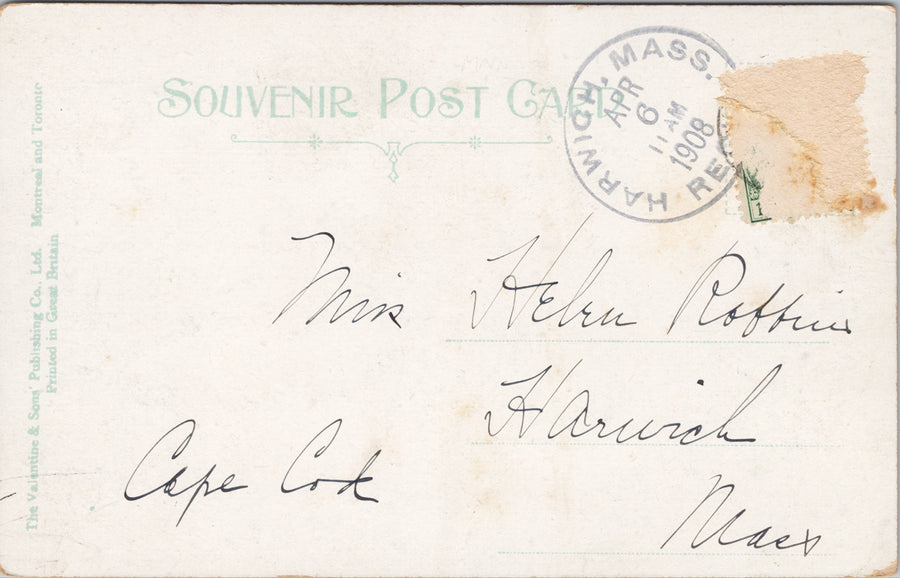 SOUVENIR POST CARD
HARWICH, MASS.
APR
6
11 AM
1908
REC'D
1
Miss Helen Robbins
Harwich
Cape Cod
Mass
The Valentine & Sons' Publishing Co., Ltd. Montreal and Toronto
Printed in Great Britain